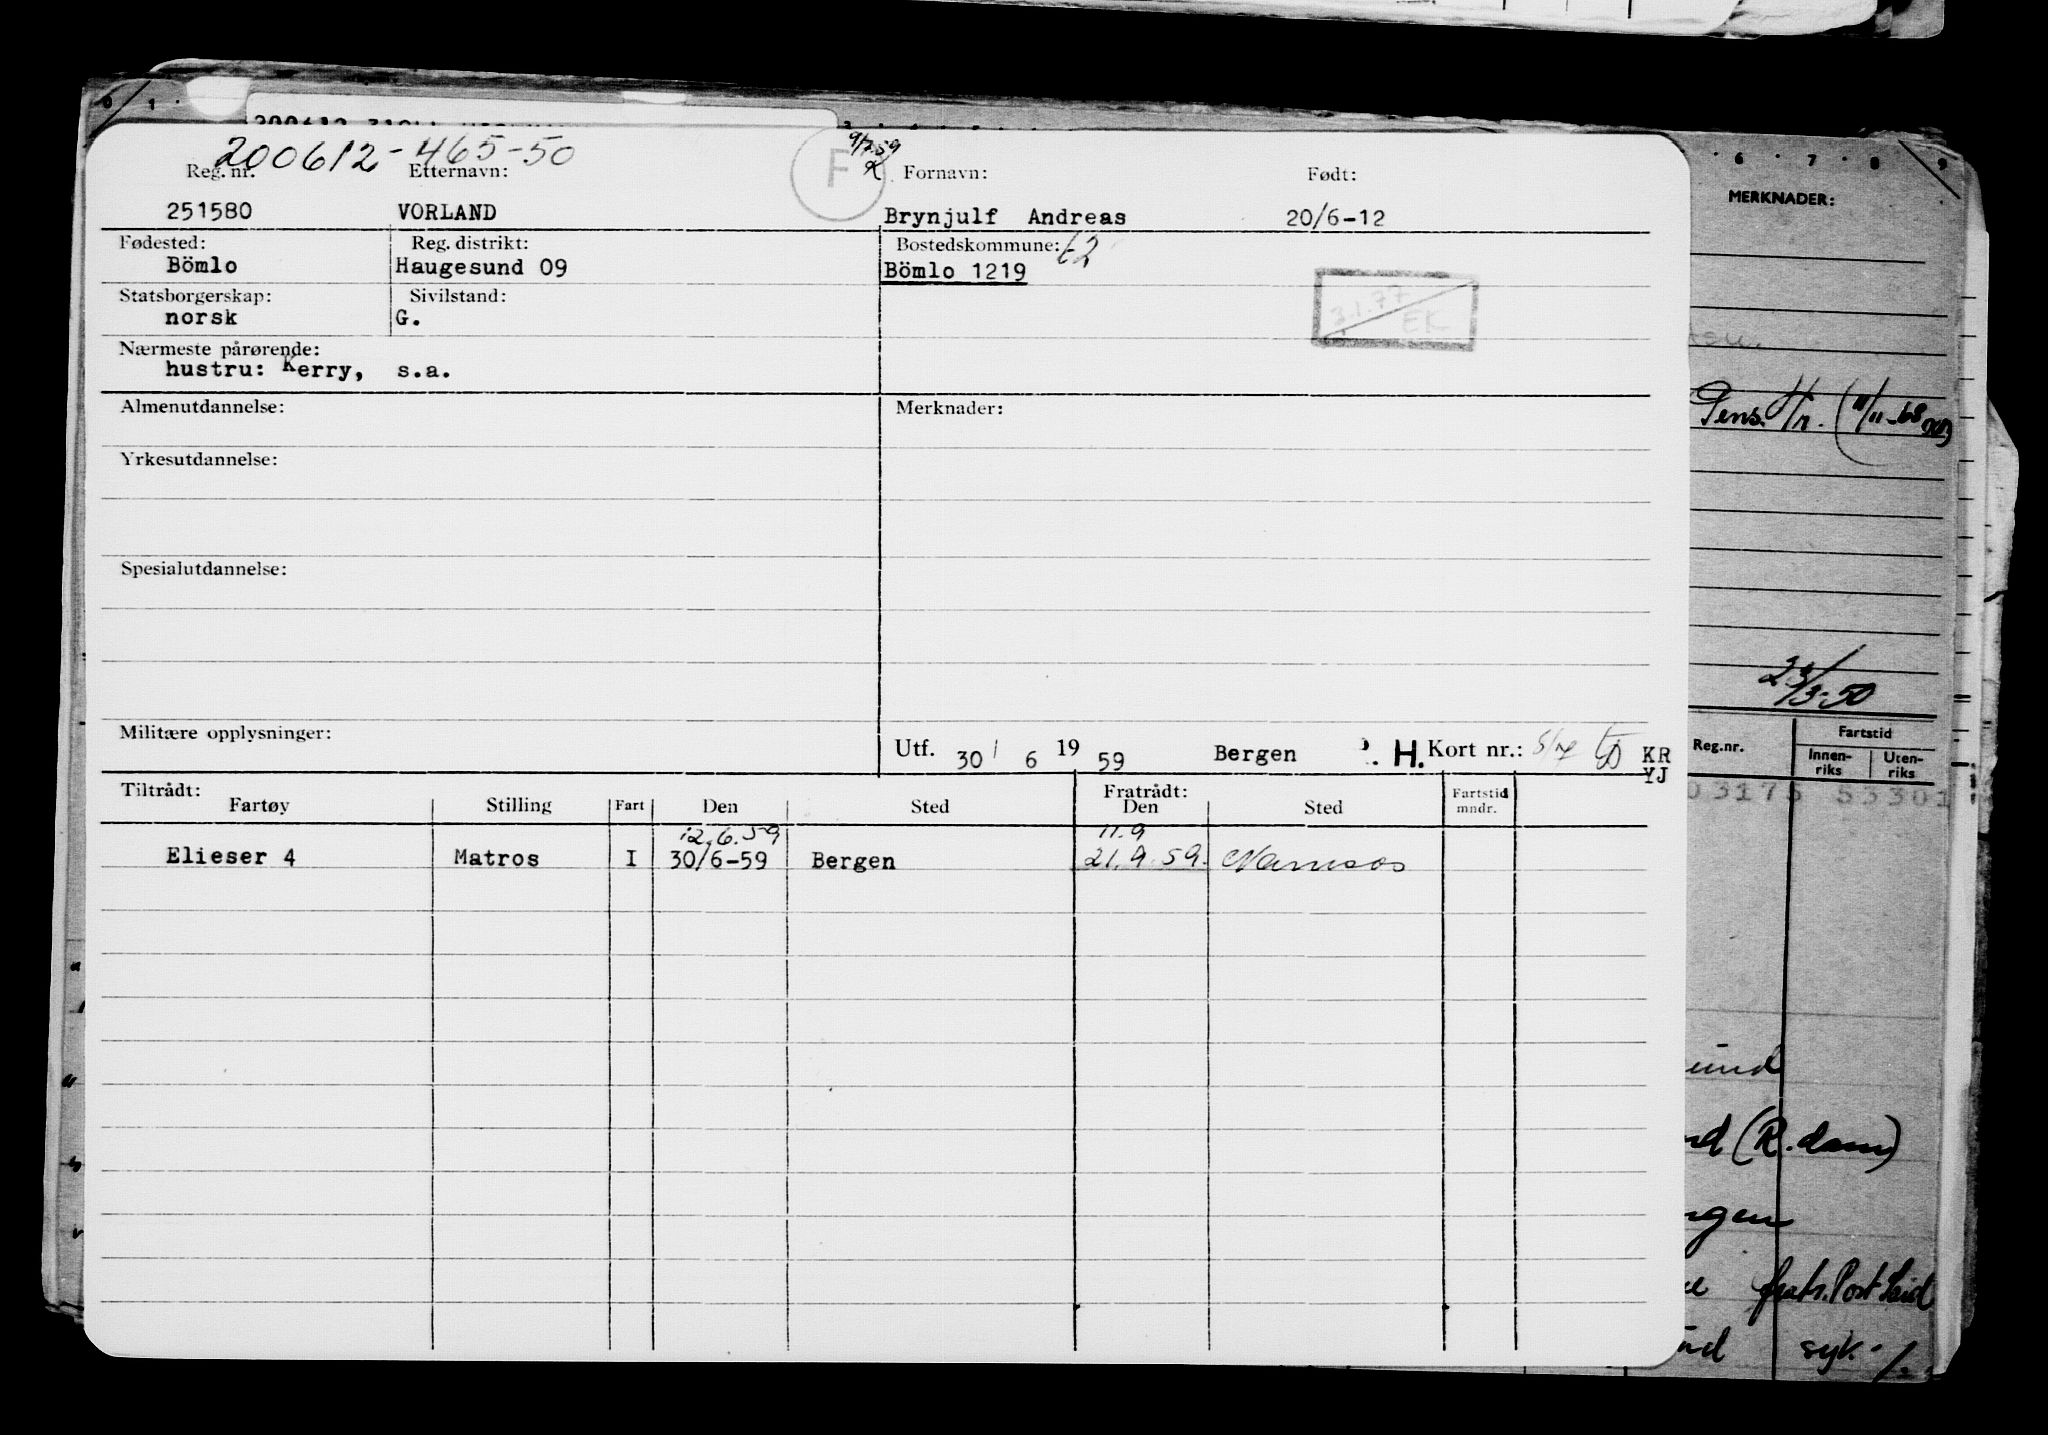 200612-465-50
9/7.59
F
Reg. nr. Etternavn: Fornavn: Født:
251580 VORLAND Brynjulf Andreas 20/6-12
Fødested: Reg. distrikt: Bostedskommune: 62
Bömlo Haugesund 09 Bömlo 1219
Statsborgerskap: Sivilstand:
norsk G.
3.1.77
EK
Nærmeste pårørende:
hustru: Kerry, s.a.
Almenutdannelse: Merknader:
Yrkesutdannelse:
Spesialutdannelse:
Militære opplysninger: Utf. 30/ 6 19 59 Bergen H. Kort nr.: KR
YJ
Tiltrådt: Fratrådt:
Fartøy Stilling Fart Den Sted Den Sted Fartstid mndr.
12.6.59 11.9
Elieser 4 Matros I 30/6-59 Bergen 21.9.59. Namsos
0 1
6 7 8 9
MERKNADER:
Pens. (11/11-68
23/3-50
Reg.nr. Fartstid
Innen-riks Uten-riks
03175 53301
und
nd (R.dam)
rgen
fratr. Port Said
nd syk.